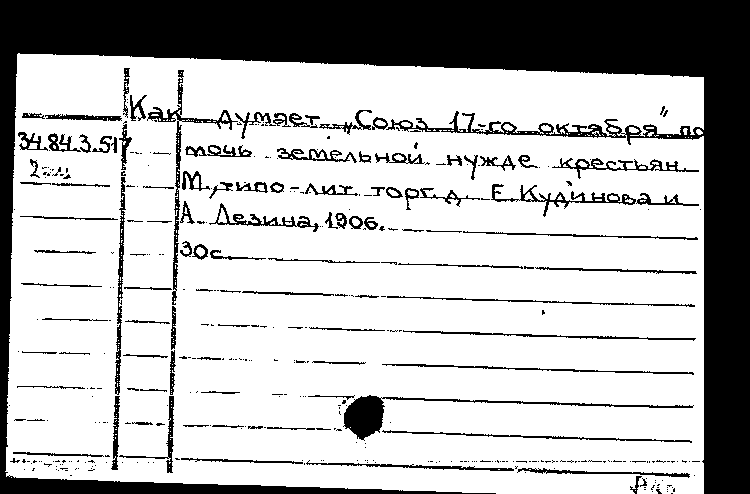 Как думает „Союз 17-го октября" по
34.84.3.517 мочь земельной нужде крестьян.
М., типо-лит. торг. д. Е. Кудинова и
А. Лезина, 1906.
30с.